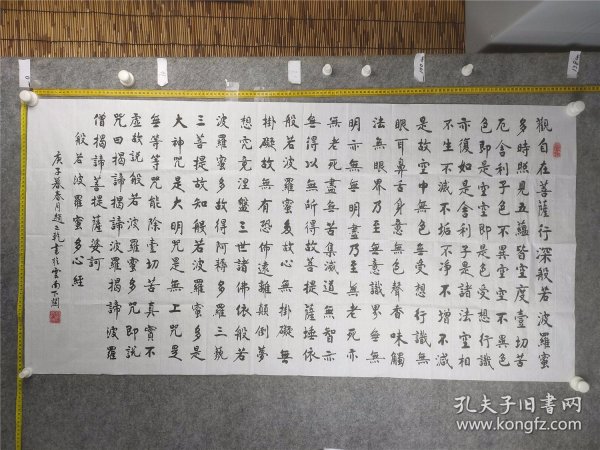 觀自在菩薩行深般若波羅蜜
多時照見五蘊皆空度壹切苦
厄舍利子色不異空空不異色
色即是空空即是色受想行識
亦復如是舍利子是諸法空相
不生不滅不垢不淨不增不減
是故空中無色無受想行識無
眼耳鼻舌身意無色聲香味觸
法無眼界乃至無意識界無無
明亦無無明盡乃至無老死亦
無老死盡無苦集滅道無智亦
無得以無所得故菩提薩埵依
般若波羅蜜多故心無掛礙無
掛礙故無有恐怖遠離顛倒夢
想究竟涅盤三世諸佛依般若
波羅蜜多故得阿耨多羅三藐
三菩提故知般若波羅蜜多是
大神咒是大明咒是無上咒是
無等等咒能除壹切苦真實不
虛故說般若波羅蜜多咒即說
咒曰揭諦揭諦波羅揭諦波羅
僧揭諦菩提薩婆訶
般若波羅蜜多心經
庚子暮春月趙書於雲南
孔夫子旧书网
www.kongfz.com